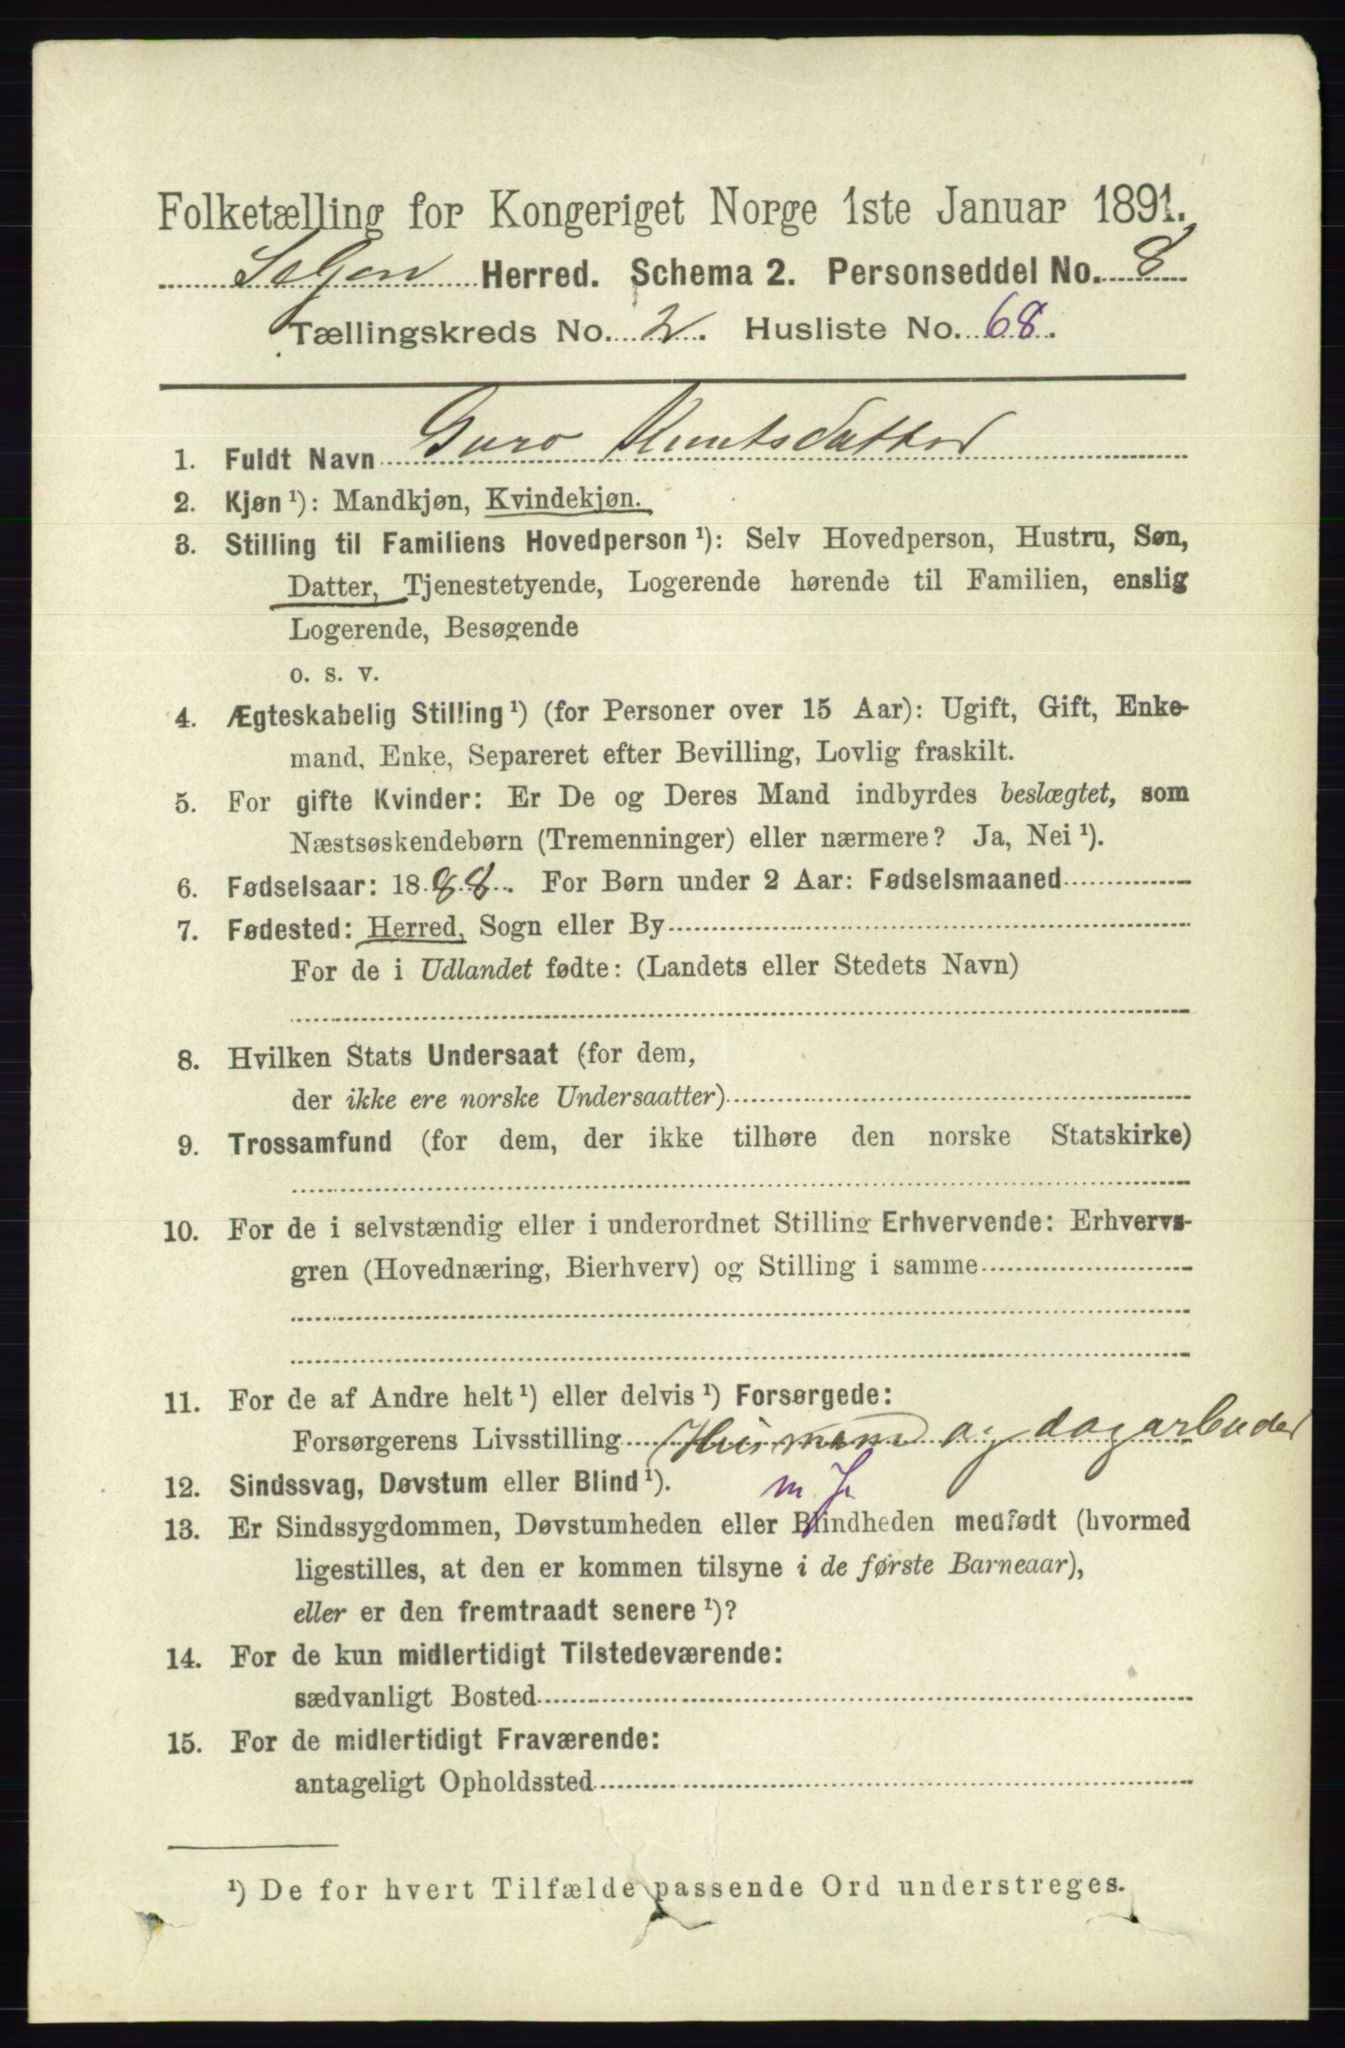 Folketælling for Kongeriget Norge 1ste Januar 1891.
Herred. Schema 2. Personseddel No. 8
Tællingskreds No. 2. Husliste No. 68.
1. Fuldt Navn Guro Knutsdatter
2. Kjøn ¹): Mandkjøn, Kvindekjøn.
3. Stilling til Familiens Hovedperson ¹): Selv Hovedperson, Hustru, Søn,
Datter, Tjenestetyende, Logerende hørende til Familien, enslig
Logerende, Besøgende
o. s. v.
4. Ægteskabelig Stilling ¹) (for Personer over 15 Aar): Ugift, Gift, Enke-
mand, Enke, Separeret efter Bevilling, Lovlig fraskilt.
5. For gifte Kvinder: Er De og Deres Mand indbyrdes beslægtet, som
Næstsøskendebørn (Tremenninger) eller nærmere? Ja, Nei ¹).
6. Fødselsaar: 1888. For Børn under 2 Aar: Fødselsmaaned
7. Fødested: Herred, Sogn eller By
For de i Udlandet fødte: (Landets eller Stedets Navn)
8. Hvilken Stats Undersaat (for dem,
der ikke ere norske Undersaatter)
9. Trossamfund (for dem, der ikke tilhøre den norske Statskirke)
10. For de i selvstændig eller i underordnet Stilling Erhvervende: Erhvervs-
gren (Hovednæring, Bierhverv) og Stilling i samme
11. For de af Andre helt ¹) eller delvis ¹) Forsørgede:
Forsørgerens Livsstilling Husmand og dagarbeider
12. Sindssvag, Døvstum eller Blind ¹). m J
13. Er Sindssygdommen, Døvstumheden eller Blindheden medfødt (hvormed
ligestilles, at den er kommen tilsyne i de første Barneaar),
eller er den fremtraadt senere ¹)?
14. For de kun midlertidigt Tilstedeværende:
sædvanligt Bosted
15. For de midlertidigt Fraværende:
antageligt Opholdssted
¹) De for hvert Tilfælde passende Ord understreges.